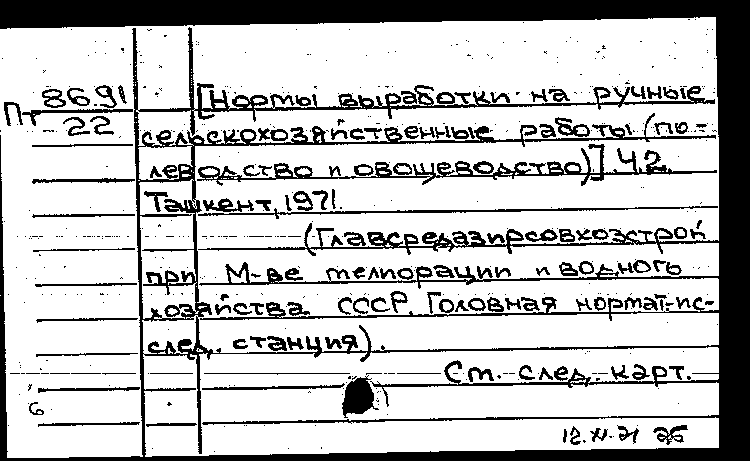 Пт 86.91
22
[Нормы выработки на ручные
сельскохозяйственные работы (по-
леводство и овощеводство)]. Ч.2.
Ташкент, 1971.
(Главсредазирсовхозстрой
при М-ве мелиорации и водного
хозяйства СССР. Головная нормат.-ис-
след. станция).
См. след. карт.
6
12.XI.71